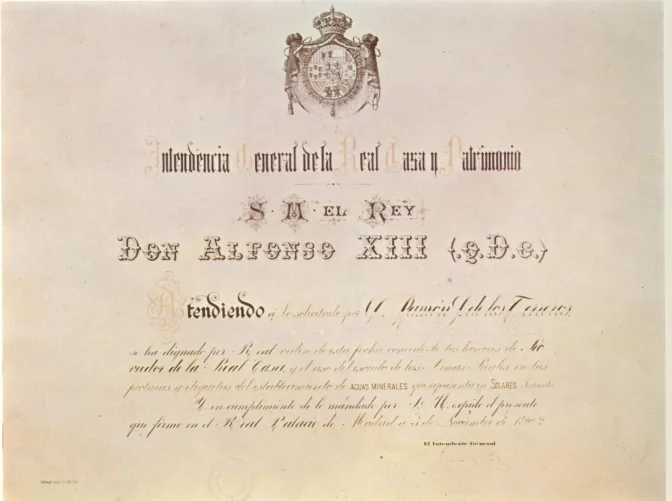 Intendencia General de la Real Casa y Patrimonio
S. M. EL REY
DON ALFONSO XIII (q.D.g.)
Atendiendo á lo solicitado por D. Ramón de los
se ha dignado por Real orden de esta fecha concederle los honores de Pro
veedor de la Real Casa y el uso del escudo de las Armas Reales en las
y etiquetas del establecimiento de AGUAS MINERALES que en SOLARES
Y en cumplimiento de lo mandado por S. M. expido el presente
que firmo en el Real Palacio de Madrid á de Noviembre de
El Intendente General